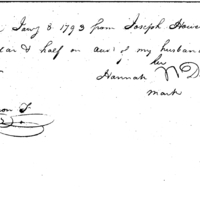 Jany 8 1793 from Joseph Howe
ear & half on acct of my husband
her
Hannah N D
mark